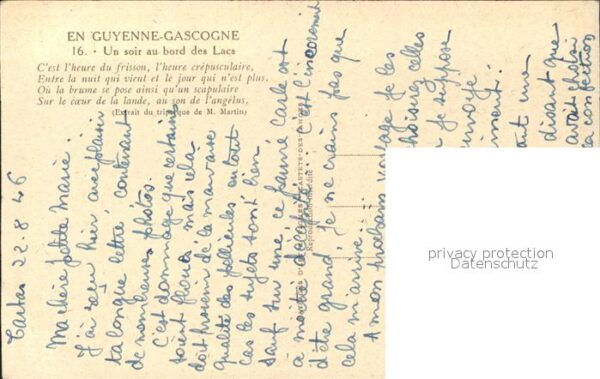 EN GUYENNE-GASCOGNE
16. - Un soir au bord des Lacs
C'est l'heure du frisson, l'heure crépusculaire,
Entre la nuit qui vient et le jour qui n'est plus.
Où la brume se pose ainsi qu'un scapulaire
Sur le cœur de la lande, au son de l'angélus,
(Extrait du triptyque de M. Martin)
Tartas 22.8.46
Ma chère petite Marie.
J'ai reçu hier avec plaisir
ta longue lettre, contenant
de nombreuses photos.
C'est dommage que certaines
soient floues mais cela
doit provenir de la mauvaise
qualité des pellicules en tout
cas les sujets sont bien
sauf sur une ce fameux Carle est
à moitié décapité. C'est l'inconvénient
d'être grand, je ne crains pas que
cela m'arrive..
A mon prochain voyage je les
choisirai celles
je suppose
envoye
ment.
une
disant que
avait choisi
la confection
Reproduction interdite
privacy protection
Datenschutz